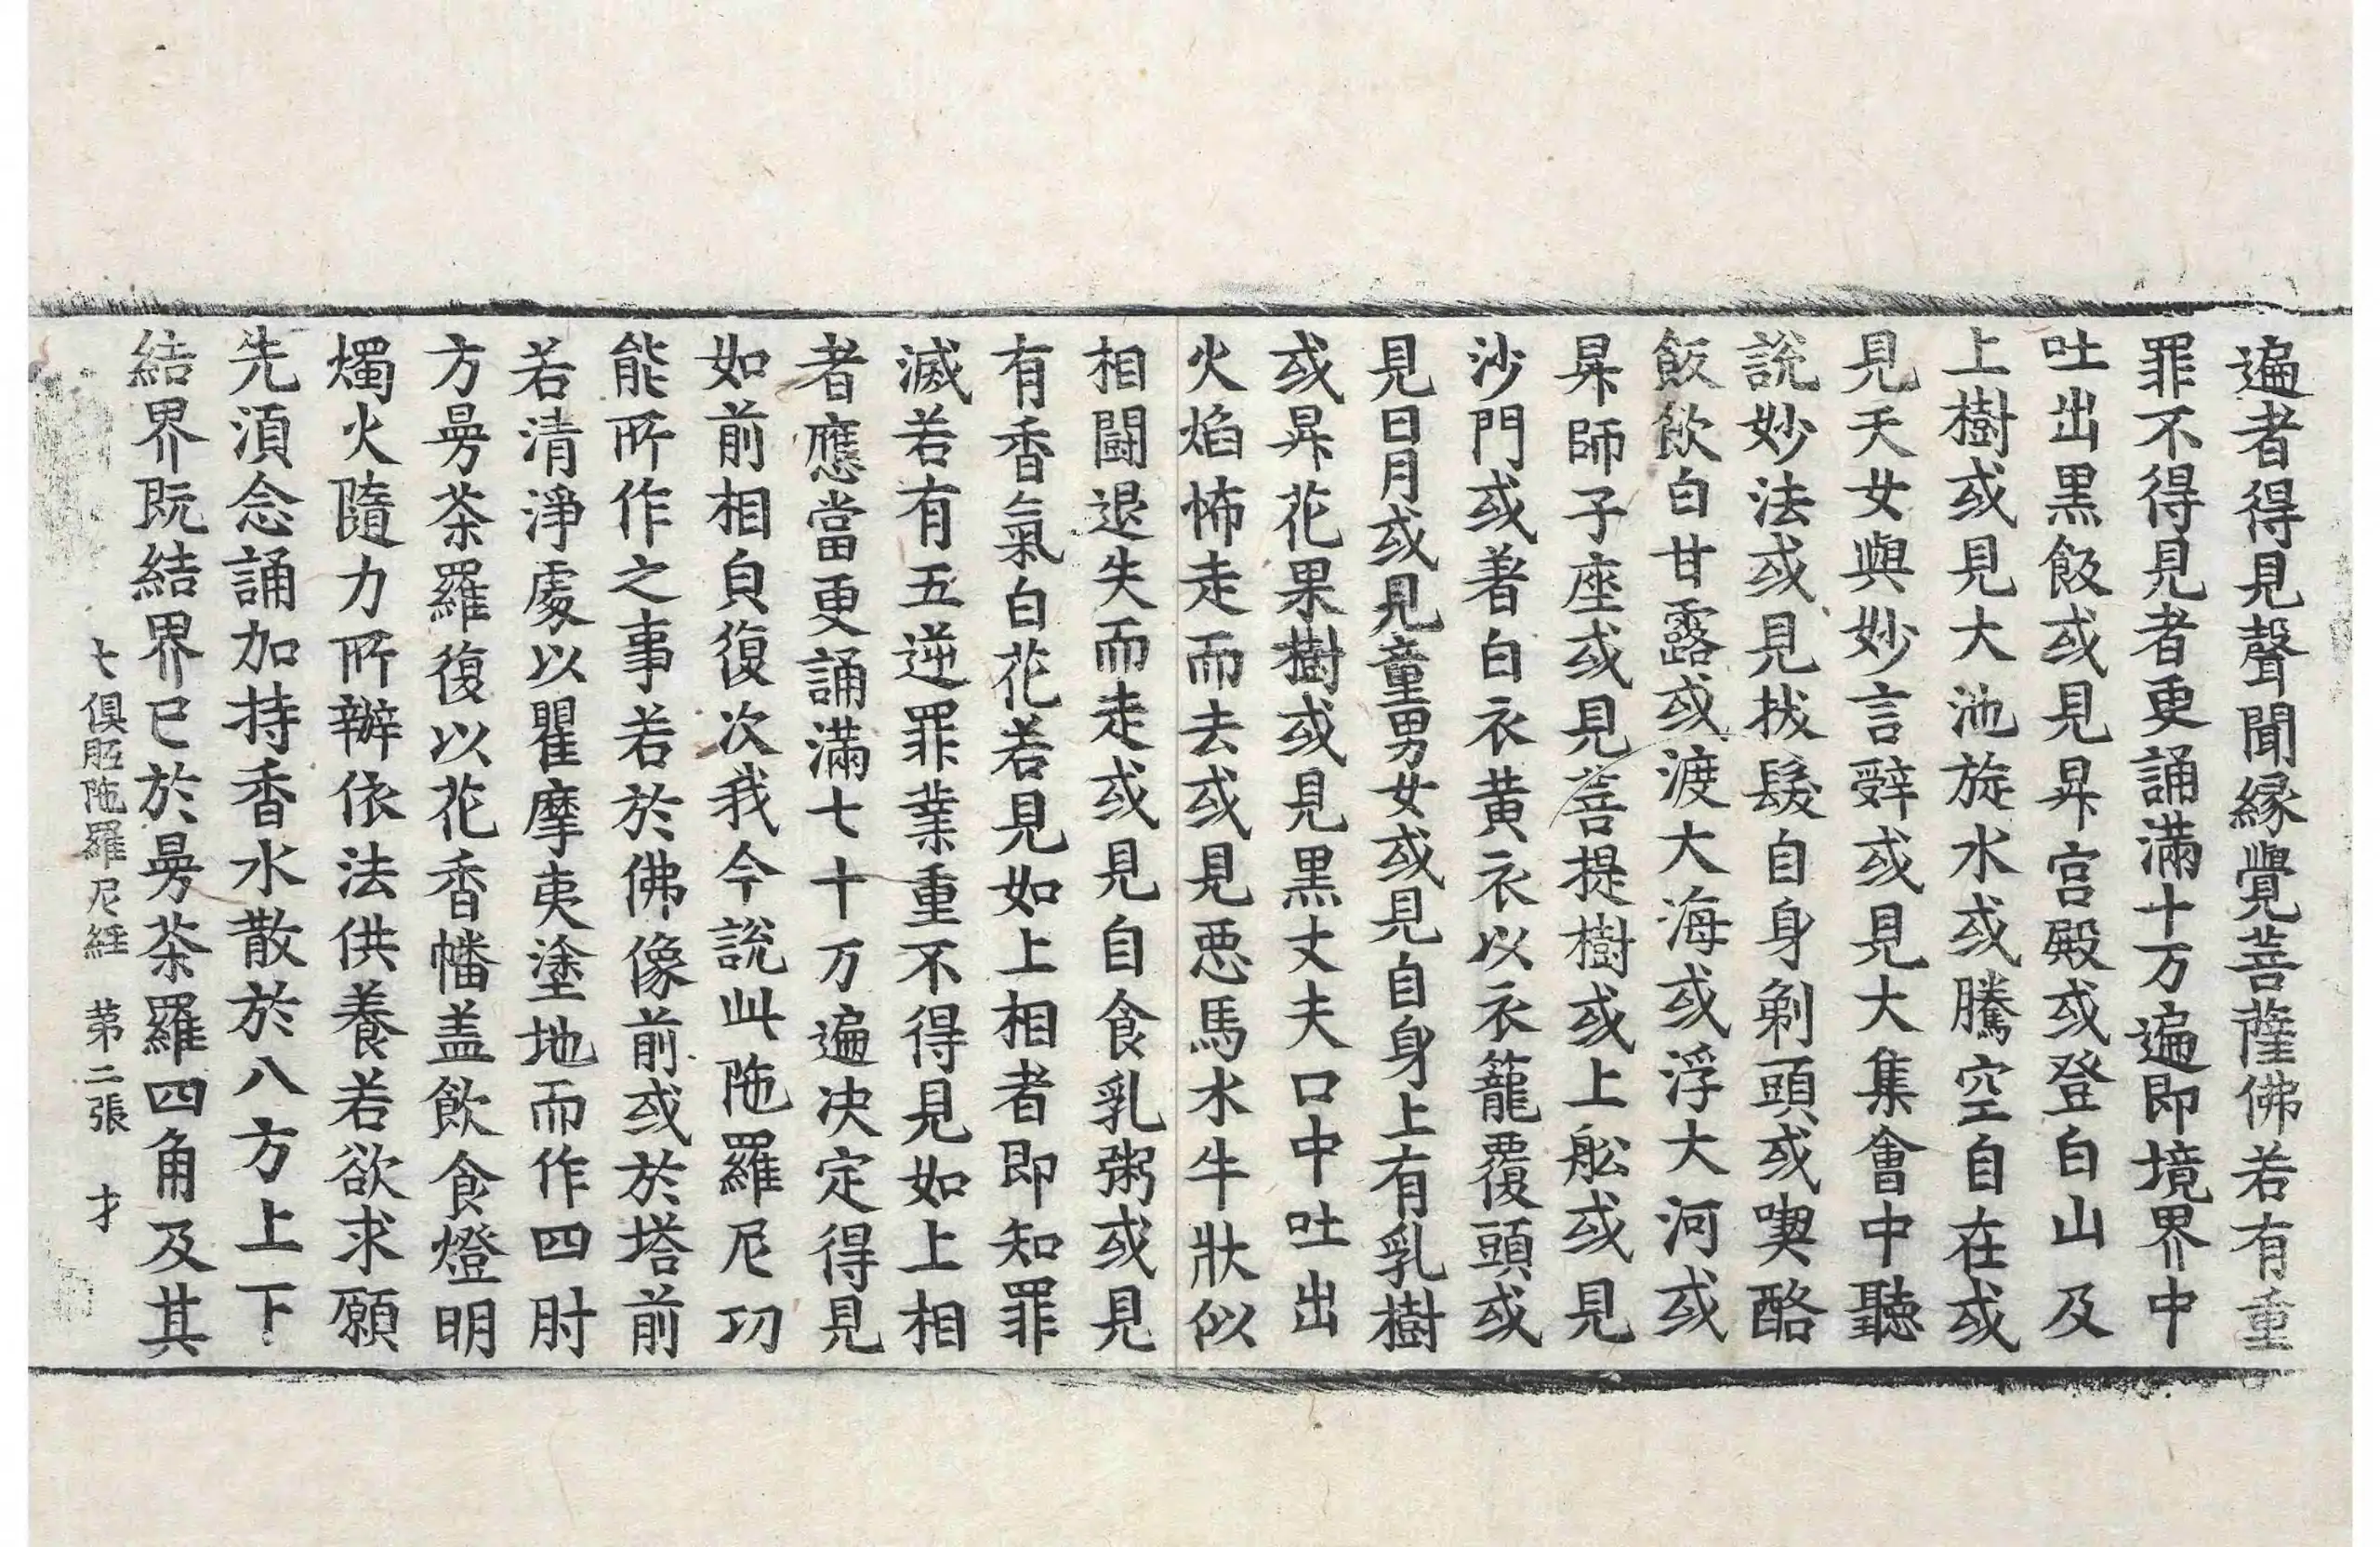 遍者得見聲聞緣覺菩薩佛若有重
罪不得見者更誦滿十万遍即境界中
吐出黑飯或見昇宮殿或登白山及
上樹或見大池旋水或騰空自在或
見天女與妙言辞或見大集會中聽
說妙法或見拔髮自身剃頭或喫酪
飯飲白甘露或渡大海或浮大河或
昇師子座或見菩提樹或上舩或見
沙門或著白衣黃衣以衣籠覆頭或
見日月或見童男女或見自身上有乳樹
或昇花果樹或見黑丈夫口中吐出
火焰怖走而去或見惡馬水牛狀似
相鬪退失而走或見自食乳粥或見
有香氣白花若見如上相者即知罪
滅若有五逆罪業重不得見如上相
者應當更誦滿七十万遍決定得見
如前相皃復次我今說此陁羅尼功
能所作之事若於佛像前或於塔前
若清淨處以瞿摩夷塗地而作四肘
方曼茶羅復以花香幡盖飲食燈明
燭火隨力所辦依法供養若欲求願
先須念誦加持香水散於八方上下
結界既結界已於曼茶羅四角及其
七俱胝陁羅尼經 第二張 才